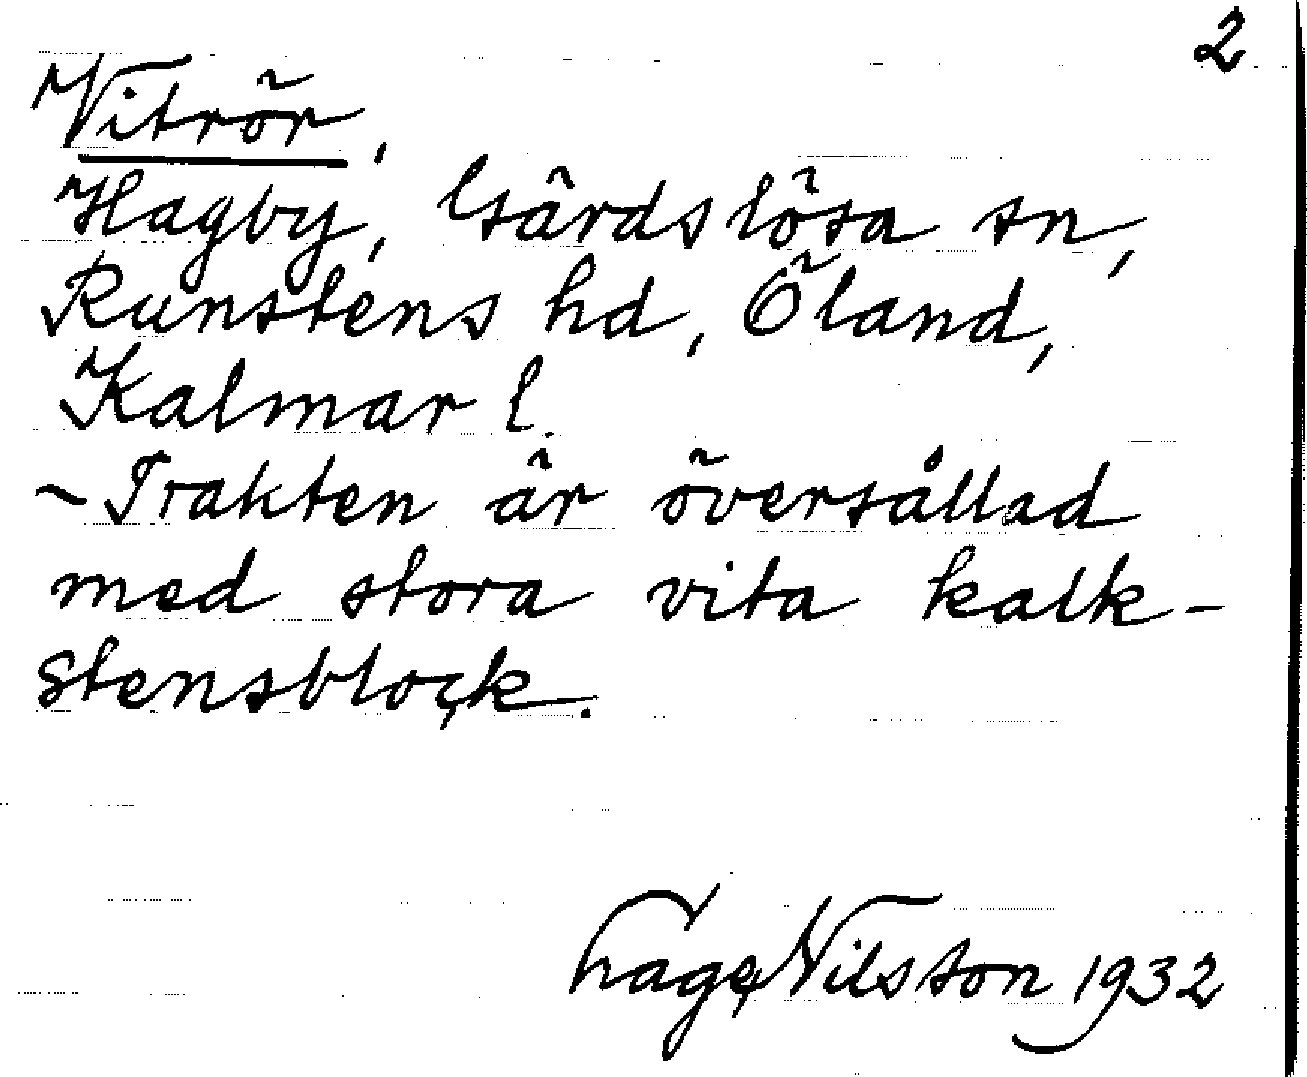 2
Vitrör,
Hagby, Gärdslösa sn,
Runstens hd, Öland,
Kalmar l.
- Trakten är översållad
med stora vita kalk-
stensblock.
Hage Nilsson 1932